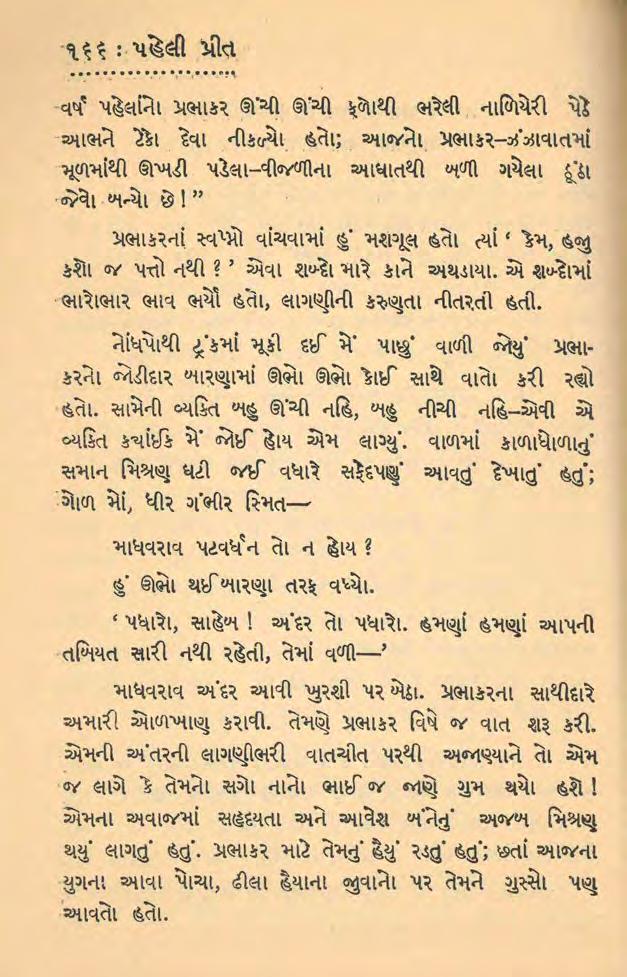 ૧૬૬ : પહેલી પ્રીત
વર્ષ પહેલાંનો પ્રભાકર ઊંચી ઊંચી ફળોથી ભરેલી નાળિયેરી પેઠે
આભને ટેકા દેવા નીકળ્યો હતો; આજનો પ્રભાકર–ઝંઝાવાતમાં
મૂળમાંથી ઊખડી પડેલા–વીજળીના આઘાતથી બળી ગયેલા ઠૂંઠા
જેવો બન્યો છે!”
પ્રભાકરનાં સ્વપ્નો વાંચવામાં હું મશગૂલ હતો ત્યાં ‘ કેમ, હજુ
કશો જ પત્તો નથી ? ’ એવા શબ્દો મારે કાને અથડાયા. એ શબ્દોમાં
ભારોભાર ભાવ ભર્યો હતો, લાગણીની કરુણતા નીતરતી હતી.
નોંધપોથી ટ્રંકમાં મૂકી દઈ મેં પાછું વાળી જોયું પ્રભા-
કરનો જોડીદાર બારણામાં ઊભો ઊભો કોઈ સાથે વાતો કરી રહ્યો
હતો. સામેની વ્યક્તિ બહુ ઊંચી નહિ, બહુ નીચી નહિ–એવી એ
વ્યક્તિ કયાંઈક મેં જોઈ હોય એમ લાગ્યું. વાળમાં કાળાધોળાનું
સમાન મિશ્રણ ઘટી જઈ વધારે સફેદપણું આવતું દેખાતું હતું;
ગોળ મોં, ધીર ગંભીર સ્મિત—
માધવરાવ પટવર્ધન તો ન હોય ?
હું ઊભો થઈ બારણા તરફ વધ્યો.
‘ પધારો, સાહેબ ! અંદર તો પધારો. હમણાં હમણાં આપની
તબિયત સારી નથી રહેતી, તેમાં વળી—’
માધવરાવ અંદર આવી ખુરશી પર બેઠા. પ્રભાકરના સાથીદારે
અમારી ઓળખાણ કરાવી. તેમણે પ્રભાકર વિષે જ વાત શરૂ કરી.
એમની અંતરની લાગણીભરી વાતચીત પરથી અજાણ્યાને તો એમ
જ લાગે કે તેમનો સગો નાનો ભાઈ જ જાણે ગુમ થયો હશે !
એમના અવાજમાં સહૃદયતા અને આવેશ બંનેનું અજબ મિશ્રણ
થયું લાગતું હતું. પ્રભાકર માટે તેમનું હૈયું રડતું હતું; છતાં આજના
યુગના આવા પોચા, ઢીલા હૈયાના જુવાનો પર તેમને ગુસ્સો પણ
આવતો હતો.